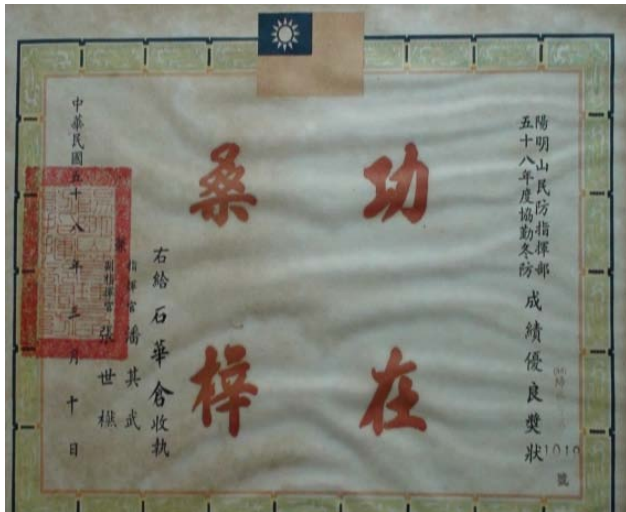 陽明山民防指揮部
五十八年度協勤冬防
成績優良獎狀
1010
號
功在
桑梓
右給石華倉收執
指揮官潘其武
副指揮官張世
中華民國五十八年三月十日